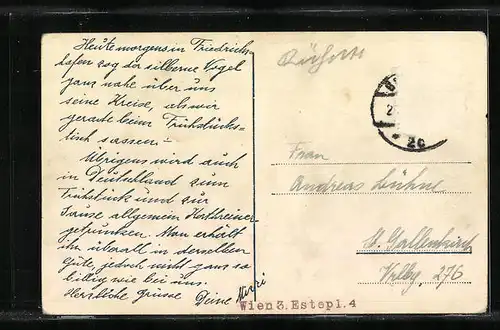 Heute morgens in Friedrichs-
hafen zog der silberne Vogel
ganz nahe über uns
seine Kreise, als wir
gerade beim Frühstücks-
tisch sassen. –
Übrigens wird auch
in Deutschland zum
Frühstück und zur
Jause allgemein Kathreiner
getrunken. Man erhält
ihn überall in derselben
Güte, jedoch nicht ganz so
billig wie bei uns.
Herzliche Grüsse
Deine Mizzi
Frau
Andreas
St. Gallenkirch
20
Wien 3. Estepl. 4